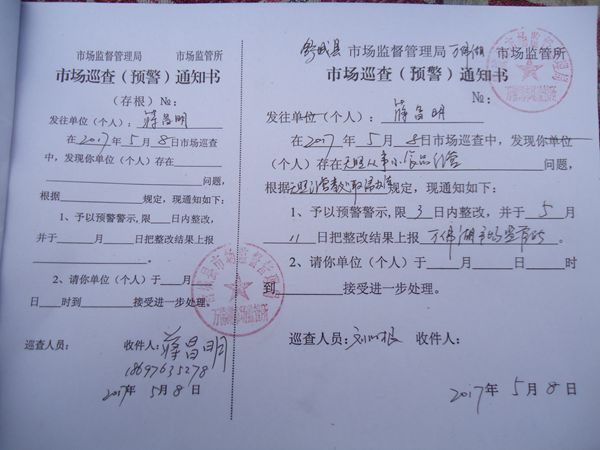 市场监督管理局 市场监管所
市场巡查（预警）通知书
（存根）№：
发往单位（个人）：蒋昌明
在2017年5月8日市场巡查
中，发现你单位（个人）存在
问题，
根据规定，现通知如下：
1、予以预警警示，限 日内整改，
并于 月 日把整改结果上报
。
2、请你单位（个人）于 月
日 时到 接受进一步处理。
巡查人员： 收件人：蒋昌明
18697635278
2017年5月8日
舒城县市场监督管理局万佛湖市场监管所
市场巡查（预警）通知书
№：
发往单位（个人）：蒋昌明
在2017年5月8日市场巡查中，发现你单位
（个人）存在无照从事小食品经营问题，
根据无照经营查处取缔办法规定，现通知如下：
1、予以预警警示，限3日内整改，并于5月
11日把整改结果上报万佛湖市场监管所。
2、请你单位（个人）于 月 日 时
到 接受进一步处理。
巡查人员： 收件人：
2017年5月8日